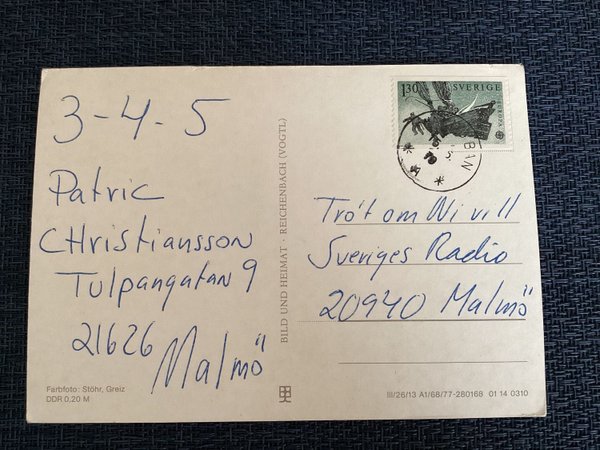 3-4-5
Patric
CHristiansson
Tulpangatan 9
21626
Malmö
Farbfoto: Stöhr, Greiz
DDR 0,20 M
BILD UND HEIMAT · REICHENBACH (VOGTL)
1.30 SVERIGE
EUROPA
BAN
Tröt om Ni vill
Sveriges Radio
20940 Malmö
III/26/13 A1/68/77-280168 01 14 0310